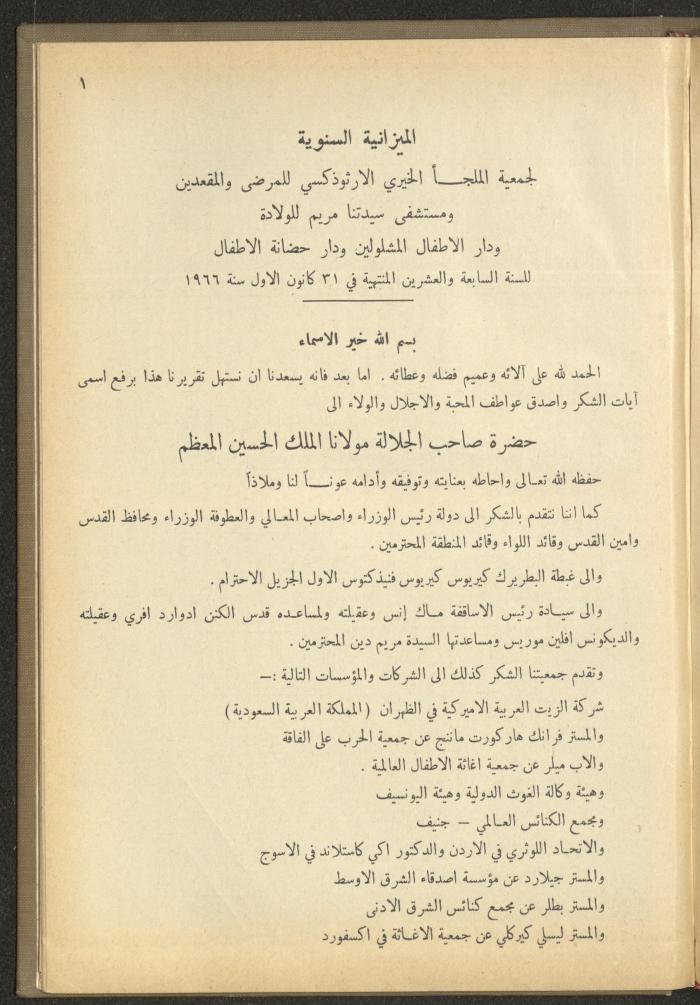 ١
الميزانية السنوية
لجمعية الملجـــأ الخيري الارثوذكسي للمرضى والمقعدين
ومستشفى سيدتنا مريم للولادة
ودار الاطفال المشلولين ودار حضانة الاطفال
للسنة السابعة والعشرين المنتهية في ٣١ كانون الاول سنة ١٩٦٦
بسم الله خير الاسماء
الحمد لله على آلائه وعميم فضله وعطائه . اما بعد فانه يسعدنا ان نستهل تقريرنا هذا برفع اسمى
آيات الشكر واصدق عواطف المحبة والاجلال والولاء الى
حضرة صاحب الجلالة مولانا الملك الحسين المعظم
حفظه الله تعـالى واحاطه بعنايته وتوفيقه وأدامه عونــــاً لنا وملاذاً
كما اننا نتقدم بالشكر الى دولة رئيس الوزراء واصحاب المعـالي والعطوفة الوزراء ومحافظ القدس
وامين القدس وقائد اللواء وقائد المنطقة المحترمين .
والى غبطة البطريرك كيريوس كيريوس فنيذكتوس الاول الجزيل الاحترام .
والى سيـادة رئيس الاساقفة مـاك إنس وعقيلته ولمساعـده قدس الكنن ادوارد افري وعقيلته
والديكونس افلين موريس ومساعدتها السيدة مريم دين المحترمين .
وتقدم جمعيتنا الشكر كذلك الى الشركات والمؤسسات التالية :—
شركة الزيت العربية الاميركية في الظهران (المملكة العربية السعودية)
والمستر فرانك هاركورت ماننج عن جمعية الحرب على الفاقة
والاب ميلر عن جمعية اغاثة الاطفال العالمية .
وهيئة وكالة الغوث الدولية وهيئة اليونسيف
ومجمع الكنائس العـالمي — جنيف
والاتحـاد اللوثري في الاردن والدكتور اكي كاستلاند في الاسوج
والمستر جيلارد عن مؤسسة اصدقاء الشرق الاوسط
والمستر بطلر عن مجمع كنائس الشرق الادنى
والمستر ليسلي كيركلي عن جمعية الاغـاثة في اكسفورد